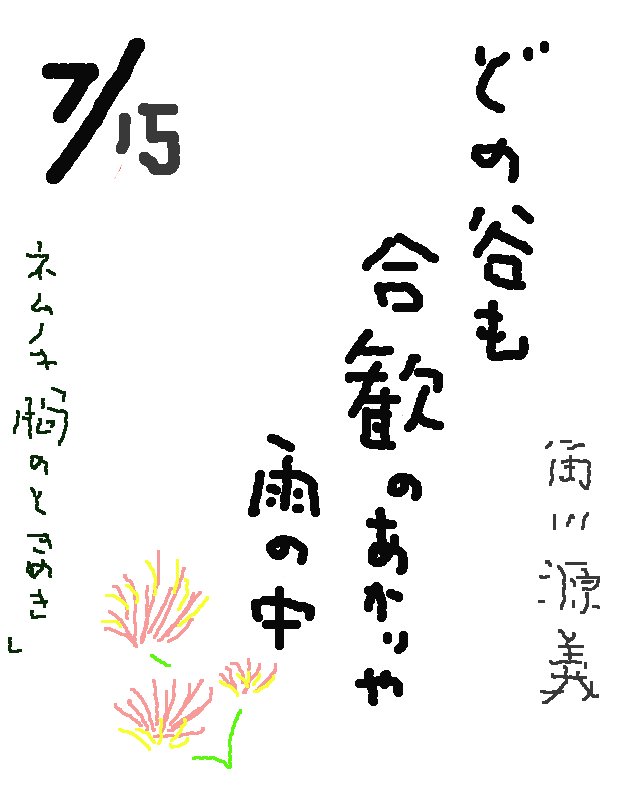 どの谷も
合歓のあかりや
雨の中
角川源義
7/15
ネムノキ「胸のときめき」